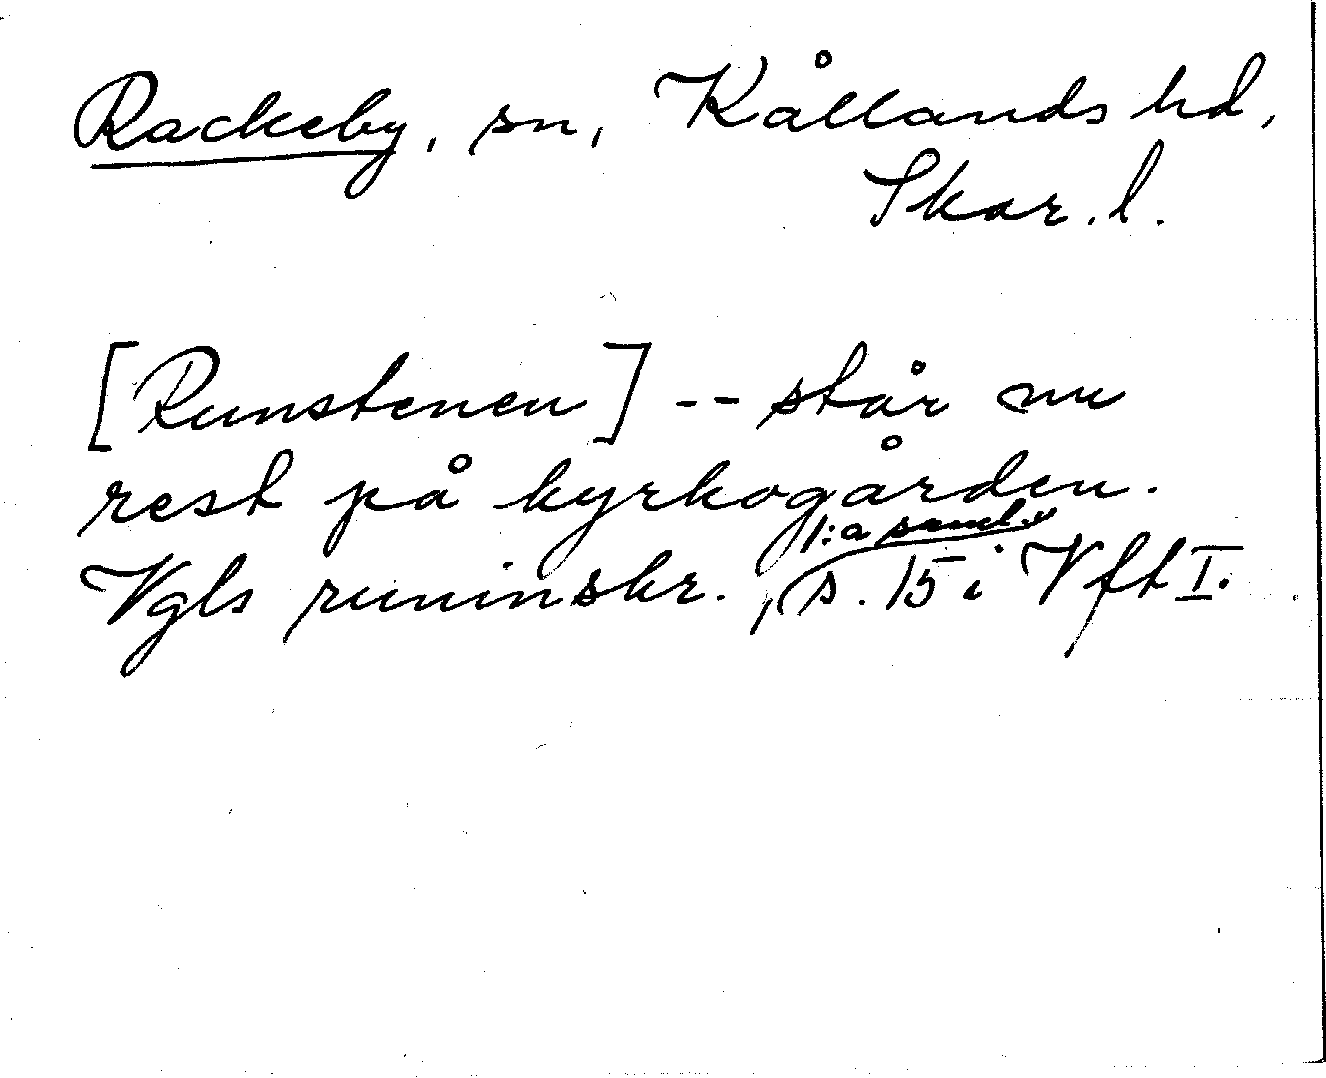 Rackeby, sn, Kållands hd,
Skar. l.
[Runstenen] -- står nu
rest på kyrkogården.
1:a saml.,
Vgls runinskr., s. 15 i Vft I.